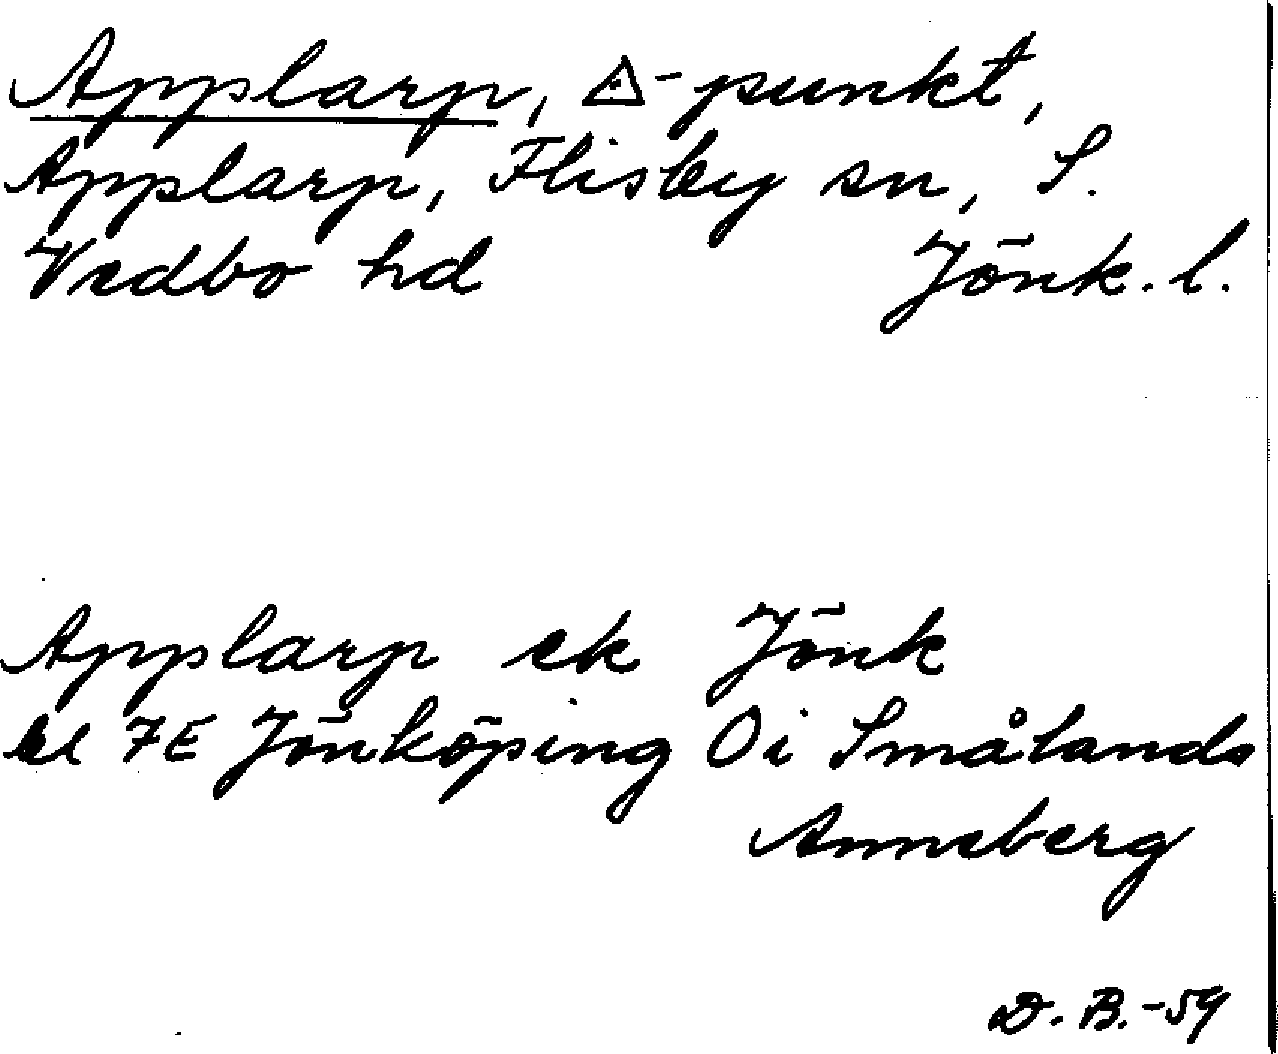 Applarp, △-punkt,
Applarp, Flisby sn, S.
Vedbo hd Jönk. l.
Applarp ek Jönk
bl 7E Jönköping 0i Smålands
Anneberg
D. B. -59